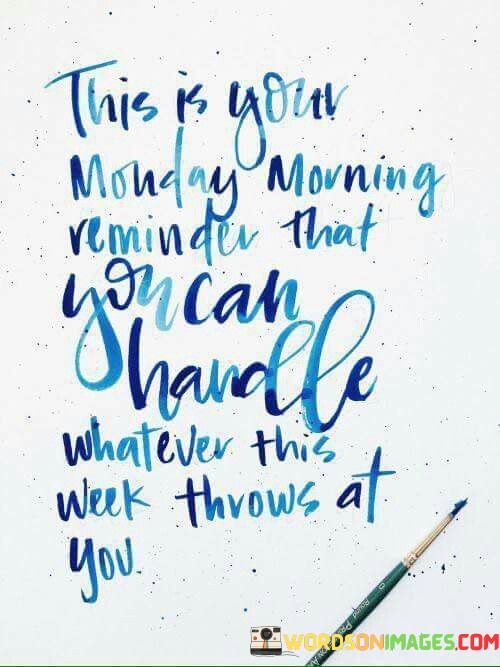 This is your
Monday Morning
reminder that
you can
handle
whatever this
week throws at
you.
WORDSONIMAGES.COM